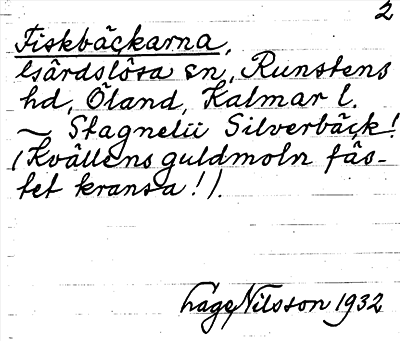 2
Fiskbäckarna,
Gårdslösa sn, Runstens
hd, Öland, Kalmar l.
~ Stagnelii Silverbäck!
(Kvällens guldmoln fäs-
tet kransa!).
Låge Nilsson 1932